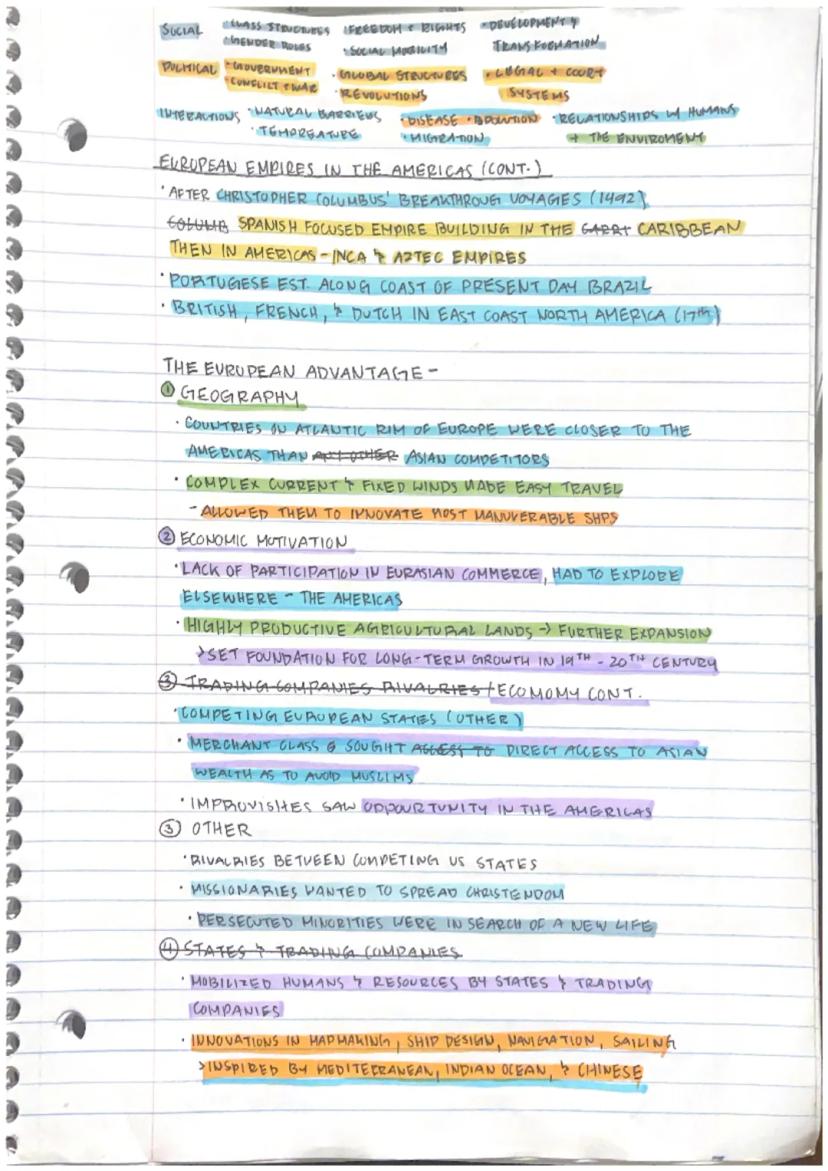 SOCIAL • CLASS STRUCTURES • FREEDOM + RIGHTS • DEVELOPMENT &
• GENDER ROLES • SOCIAL MOBILITY TRANSFORMATION
POLITICAL • GOVERNMENT • GLOBAL STRUCTURES • LEGAL + COURT
• CONFLICT + WAR REVOLUTIONS SYSTEMS
INTERACTIONS • NATURAL BARRIERS • DISEASE • POLLUTION • RELATIONSHIPS W HUMANS
• TEMPREATURE • MIGRATION + THE ENVIROMENT
EUROPEAN EMPIRES IN THE AMERICAS (CONT.)
• AFTER CHRISTOPHER COLUMBUS' BREAKTHROUG VOYAGES (1492)
COLUMB SPANISH FOCUSED EMPIRE BUILDING IN THE CARRI CARIBBEAN
THEN IN AMERICAS - INCA & AZTEC EMPIRES
• PORTUGESE EST. ALONG COAST OF PRESENT DAY BRAZIL
• BRITISH, FRENCH, & DUTCH IN EAST COAST NORTH AMERICA (17th)
THE EUROPEAN ADVANTAGE -
① GEOGRAPHY
• COUNTRIES ON ATLANTIC RIM OF EUROPE WERE CLOSER TO THE
AMERICAS THAN ANY OTHER ASIAN COMPETITORS
• COMPLEX CURRENT & FIXED WINDS MADE EASY TRAVEL
- ALLOWED THEM TO INNOVATE MOST MANUVERABLE SHPS
② ECONOMIC MOTIVATION
• LACK OF PARTICIPATION IN EURASIAN COMMERCE, HAD TO EXPLORE
ELSEWHERE - THE AMERICAS
• HIGHLY PRODUCTIVE AGRICULTURAL LANDS → FURTHER EXPANSION
> SET FOUNDATION FOR LONG-TERM GROWTH IN 19TH - 20TH CENTURY
③ TRADING COMPANIES RIVALRIES / ECOMOMY CONT.
• COMPETING EUROPEAN STATES (OTHER)
• MERCHANT CLASS SOUGHT ACCESS TO DIRECT ACCESS TO ASIAN
WEALTH AS TO AVOID MUSLIMS
• IMPROVISHES SAW OPPOURTUNITY IN THE AMERICAS
③ OTHER
• RIVALRIES BETWEEN COMPETING US STATES
• MISSIONARIES WANTED TO SPREAD CHRISTENDOM
• PERSECUTED MINORITIES WERE IN SEARCH OF A NEW LIFE
④ STATES & TRADING COMPANIES
• MOBILIZED HUMANS & RESOURCES BY STATES & TRADING
COMPANIES
• INNOVATIONS IN MAPMAKING, SHIP DESIGN, NAVIGATION, SAILING
> INSPIRED BY MEDITERRANEAN, INDIAN OCEAN, & CHINESE